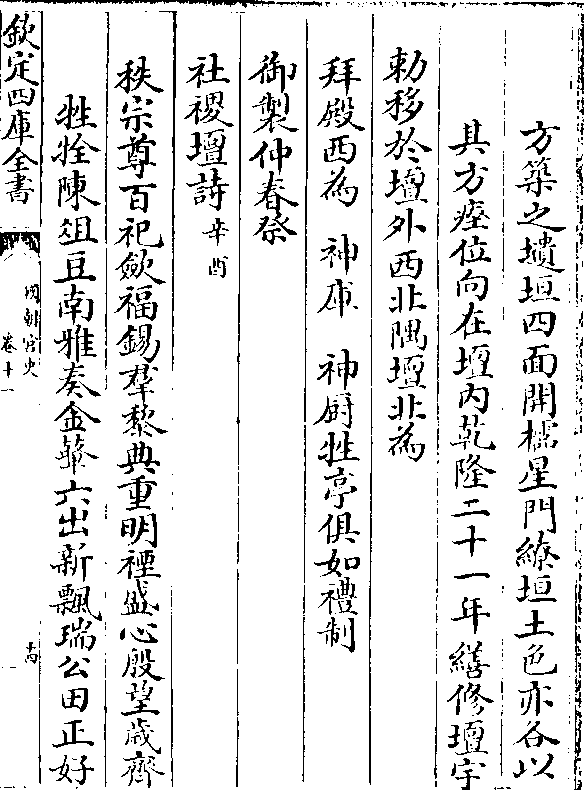 方築之壝垣四面開櫺星門繚垣土色亦各以
其方瘞位向在壇内乾隆二十一年繕修壇宇
勅移於壇外西北隅壇北為
拜殿西為 神庫 神厨牲亭俱如禮制
御製仲春祭
社稷壇詩 辛酉
秩宗尊百祀斂福錫羣黎典重明禋盛心殷望歳齊
牲牷陳俎豆南雅奏金鞞六出新飄瑞公田正好
欽定四庫全書
國朝宫史
卷十一